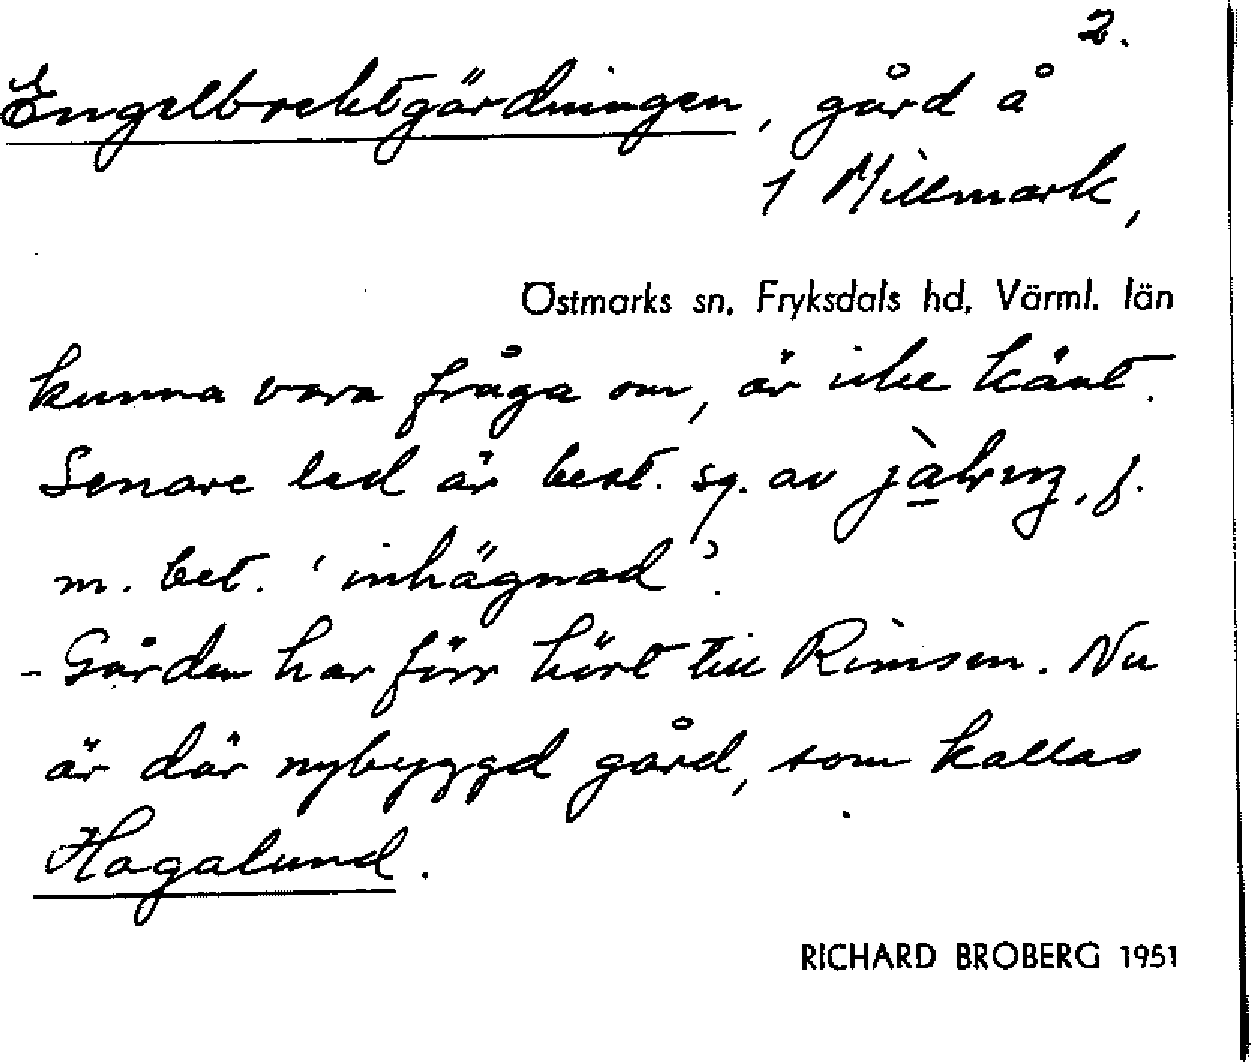 2.
Engelbrektgärdningen, gård å
1 Millmark,
Östmarks sn, Fryksdals hd, Värml. län
kunna vara fråga om, är icke känt.
Senare led är best. sg. av f.
m. bet. 'inhägnad'.
- Gården har förr hört till Rimsen. Nu
är där nybyggd gård, som kallas
Hagalund.
RICHARD BROBERG 1951